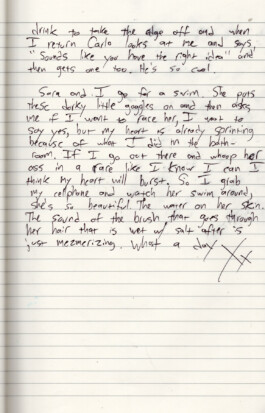 drink to take the edge off and when
I return Carlo looks at me and says,
"Sounds like you have the right idea" and
then gets one too. He's so cool.
Sara and I go for a swim. She puts
these dorky little goggles on and then asks
me if I want to race her, I want to
say yes, but my heart is already sprinting
because of what I did in the bath-
room. If I go out there and whoop her
ass in a race like I know I can I
think my heart will burst. So I grab
my cellphone and watch her swim around,
she's so beautiful. The water on her skin.
The sound of the brush that goes through
her hair that is wet w/ salt after is
just mezmerizing. What a day
XX